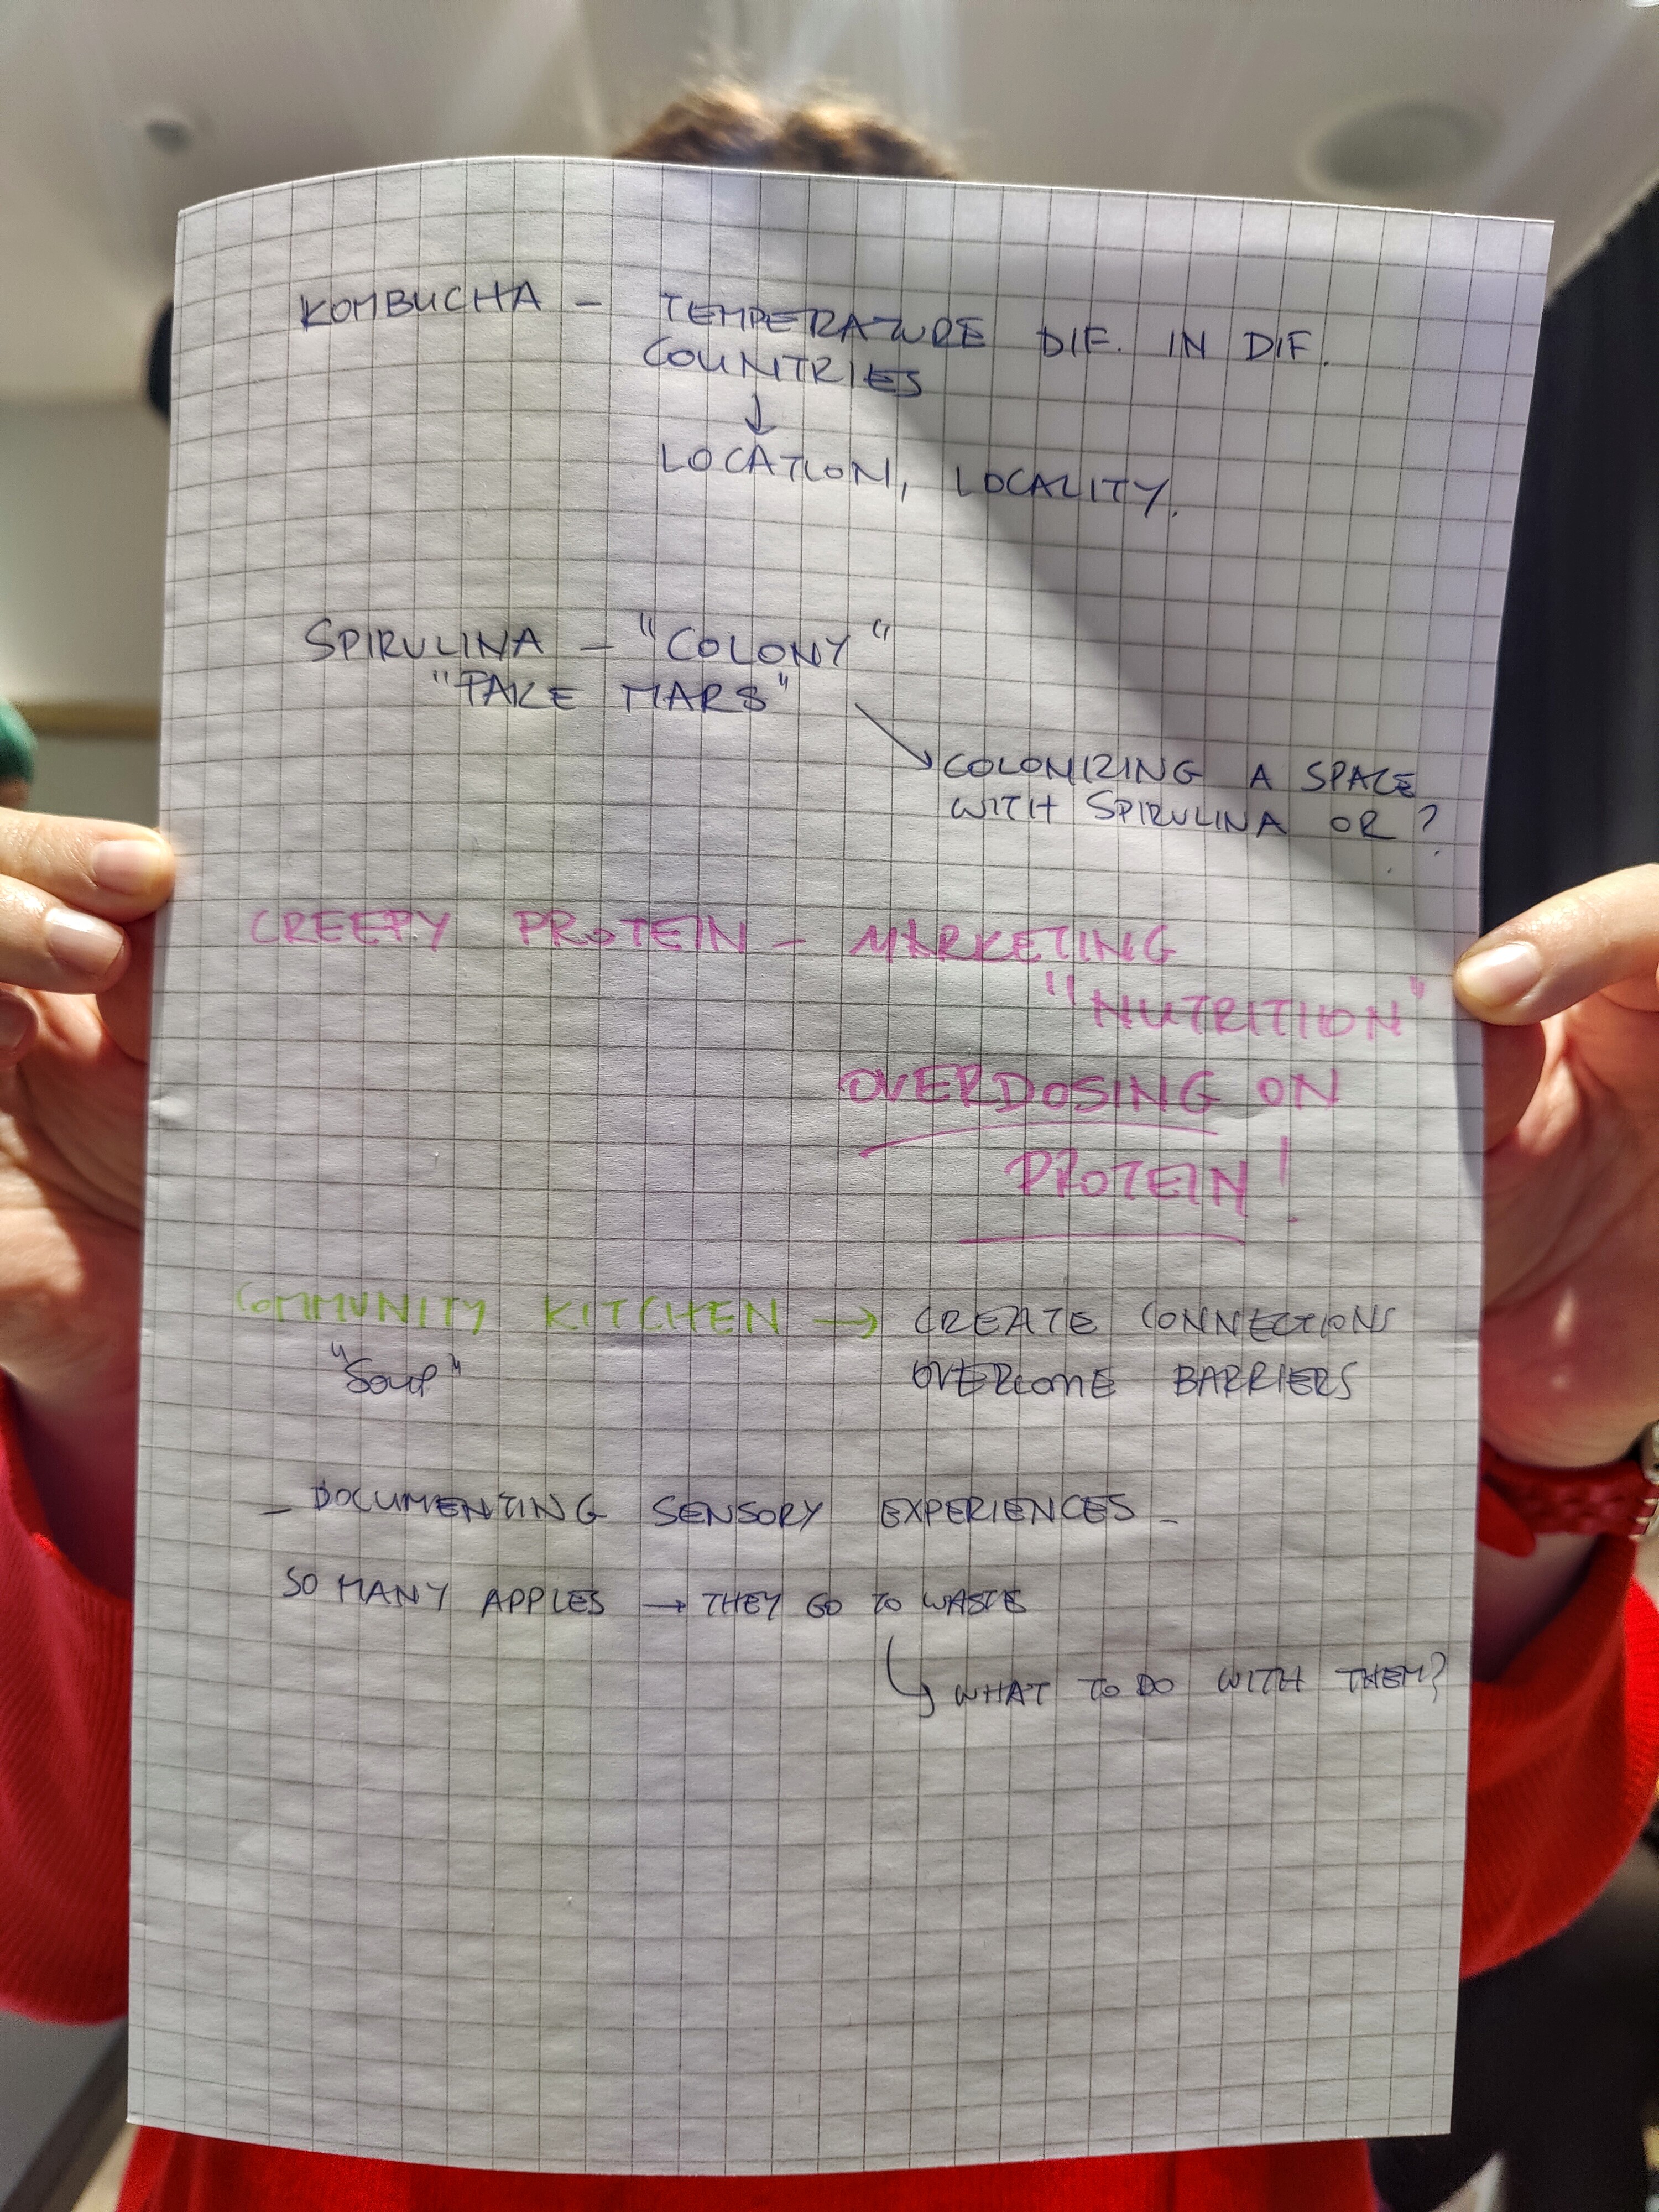 KOMBUCHA – TEMPERATURE DIF. IN DIF.
COUNTRIES
↓
LOCATION, LOCALITY.
SPIRULINA – "COLONY"
"FAKE MARS"
COLONIZING A SPACE
WITH SPIRULINA OR ?
CREEPY PROTEIN – MARKETING
"NUTRITION"
OVERDOSING ON
PROTEIN!
COMMUNITY KITCHEN → CREATE CONNECTIONS
"Soup" OVERCOME BARRIERS
– DOCUMENTING SENSORY EXPERIENCES –
SO MANY APPLES → THEY GO TO WASTE
↳ WHAT TO DO WITH THEM?